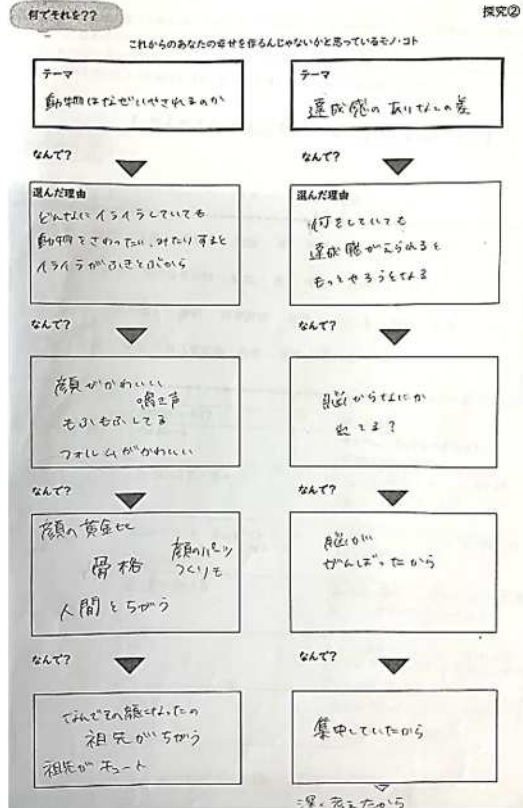 何でそれを??
探究②
これからのあなたの幸せを作るんじゃないかと思っているモノ・コト
テーマ
動物はなぜいやされるのか
なんで?
選んだ理由
どんなにイライラしていても
動物をさわったり、みたりすると
イライラがふきとぶから
なんで?
顔がかわいい
鳴き声
もふもふしてる
フォルムがかわいい
なんで?
顔の黄金比
骨格
顔のパーツ
つくりも
人間とちがう
なんで?
なんでその顔になったの
祖先がちがう
祖先がキュート
テーマ
達成感のありなしの差
なんで?
選んだ理由
何をしていても
達成感がえられると
もっとやろうとなる
なんで?
脳からなにか
出てる?
なんで?
脳が
がんばったから
なんで?
集中していたから
深く考えたから